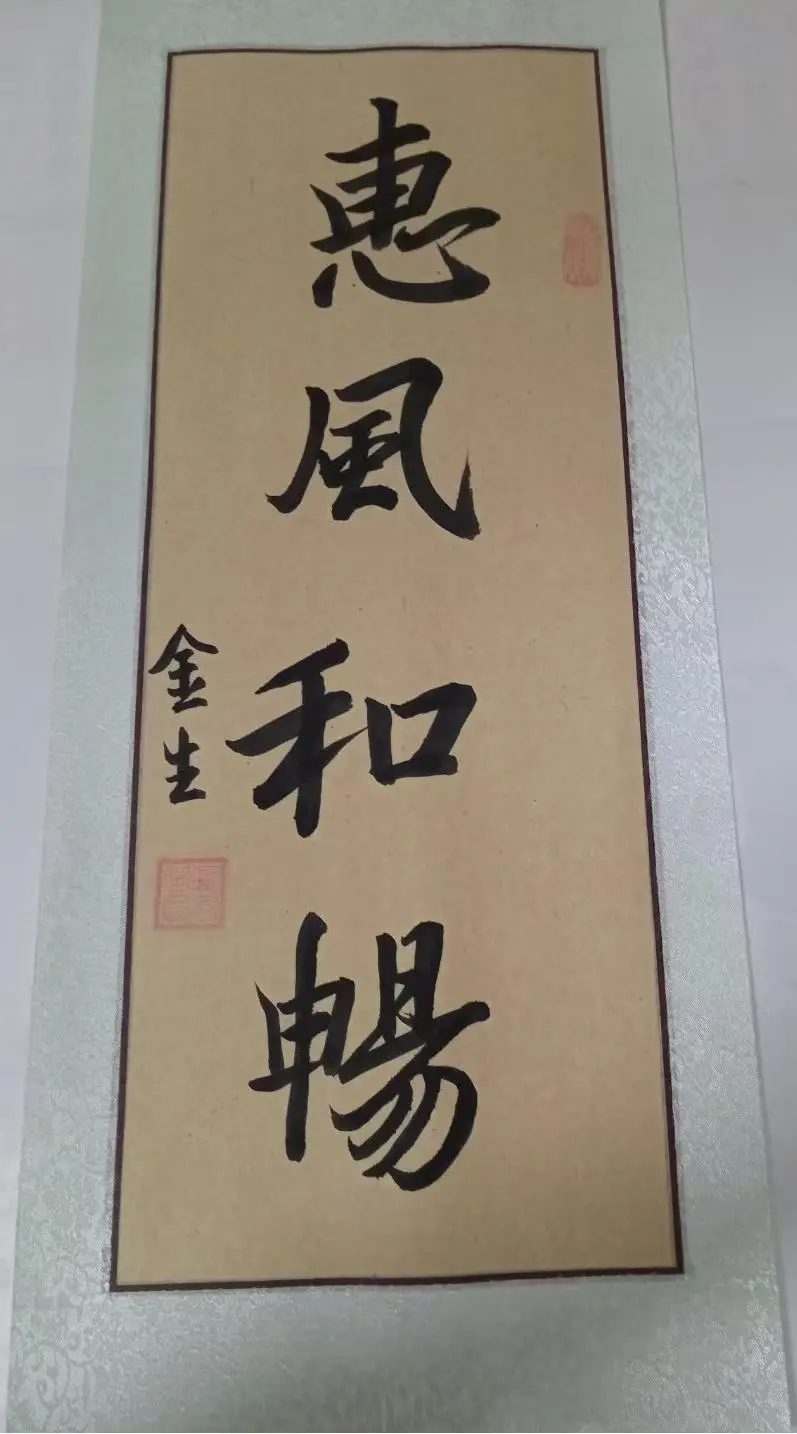 惠風和暢
金生